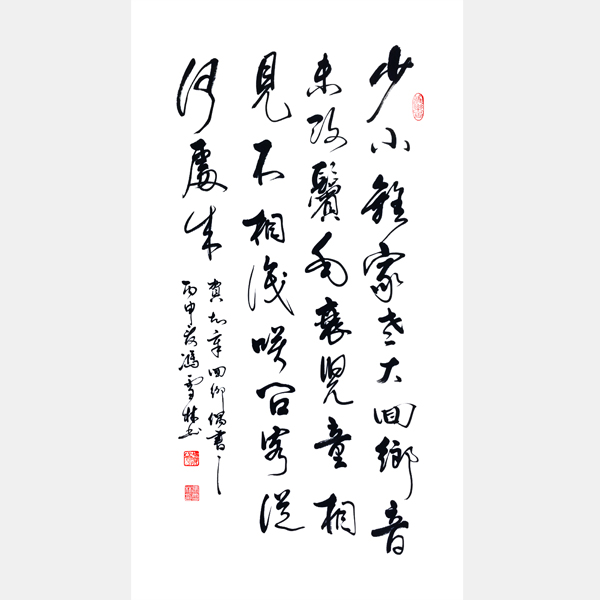 少小離家老大回鄉音
未改鬢毛衰兒童相
見不相識咲問客從
何處來
賀知章回鄉偶書之一
丙申夏馮雪林書